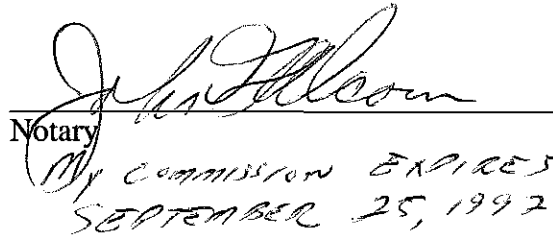 John
Notary
My COMMISSION EXPIRES
SEPTEMBER 25, 1992